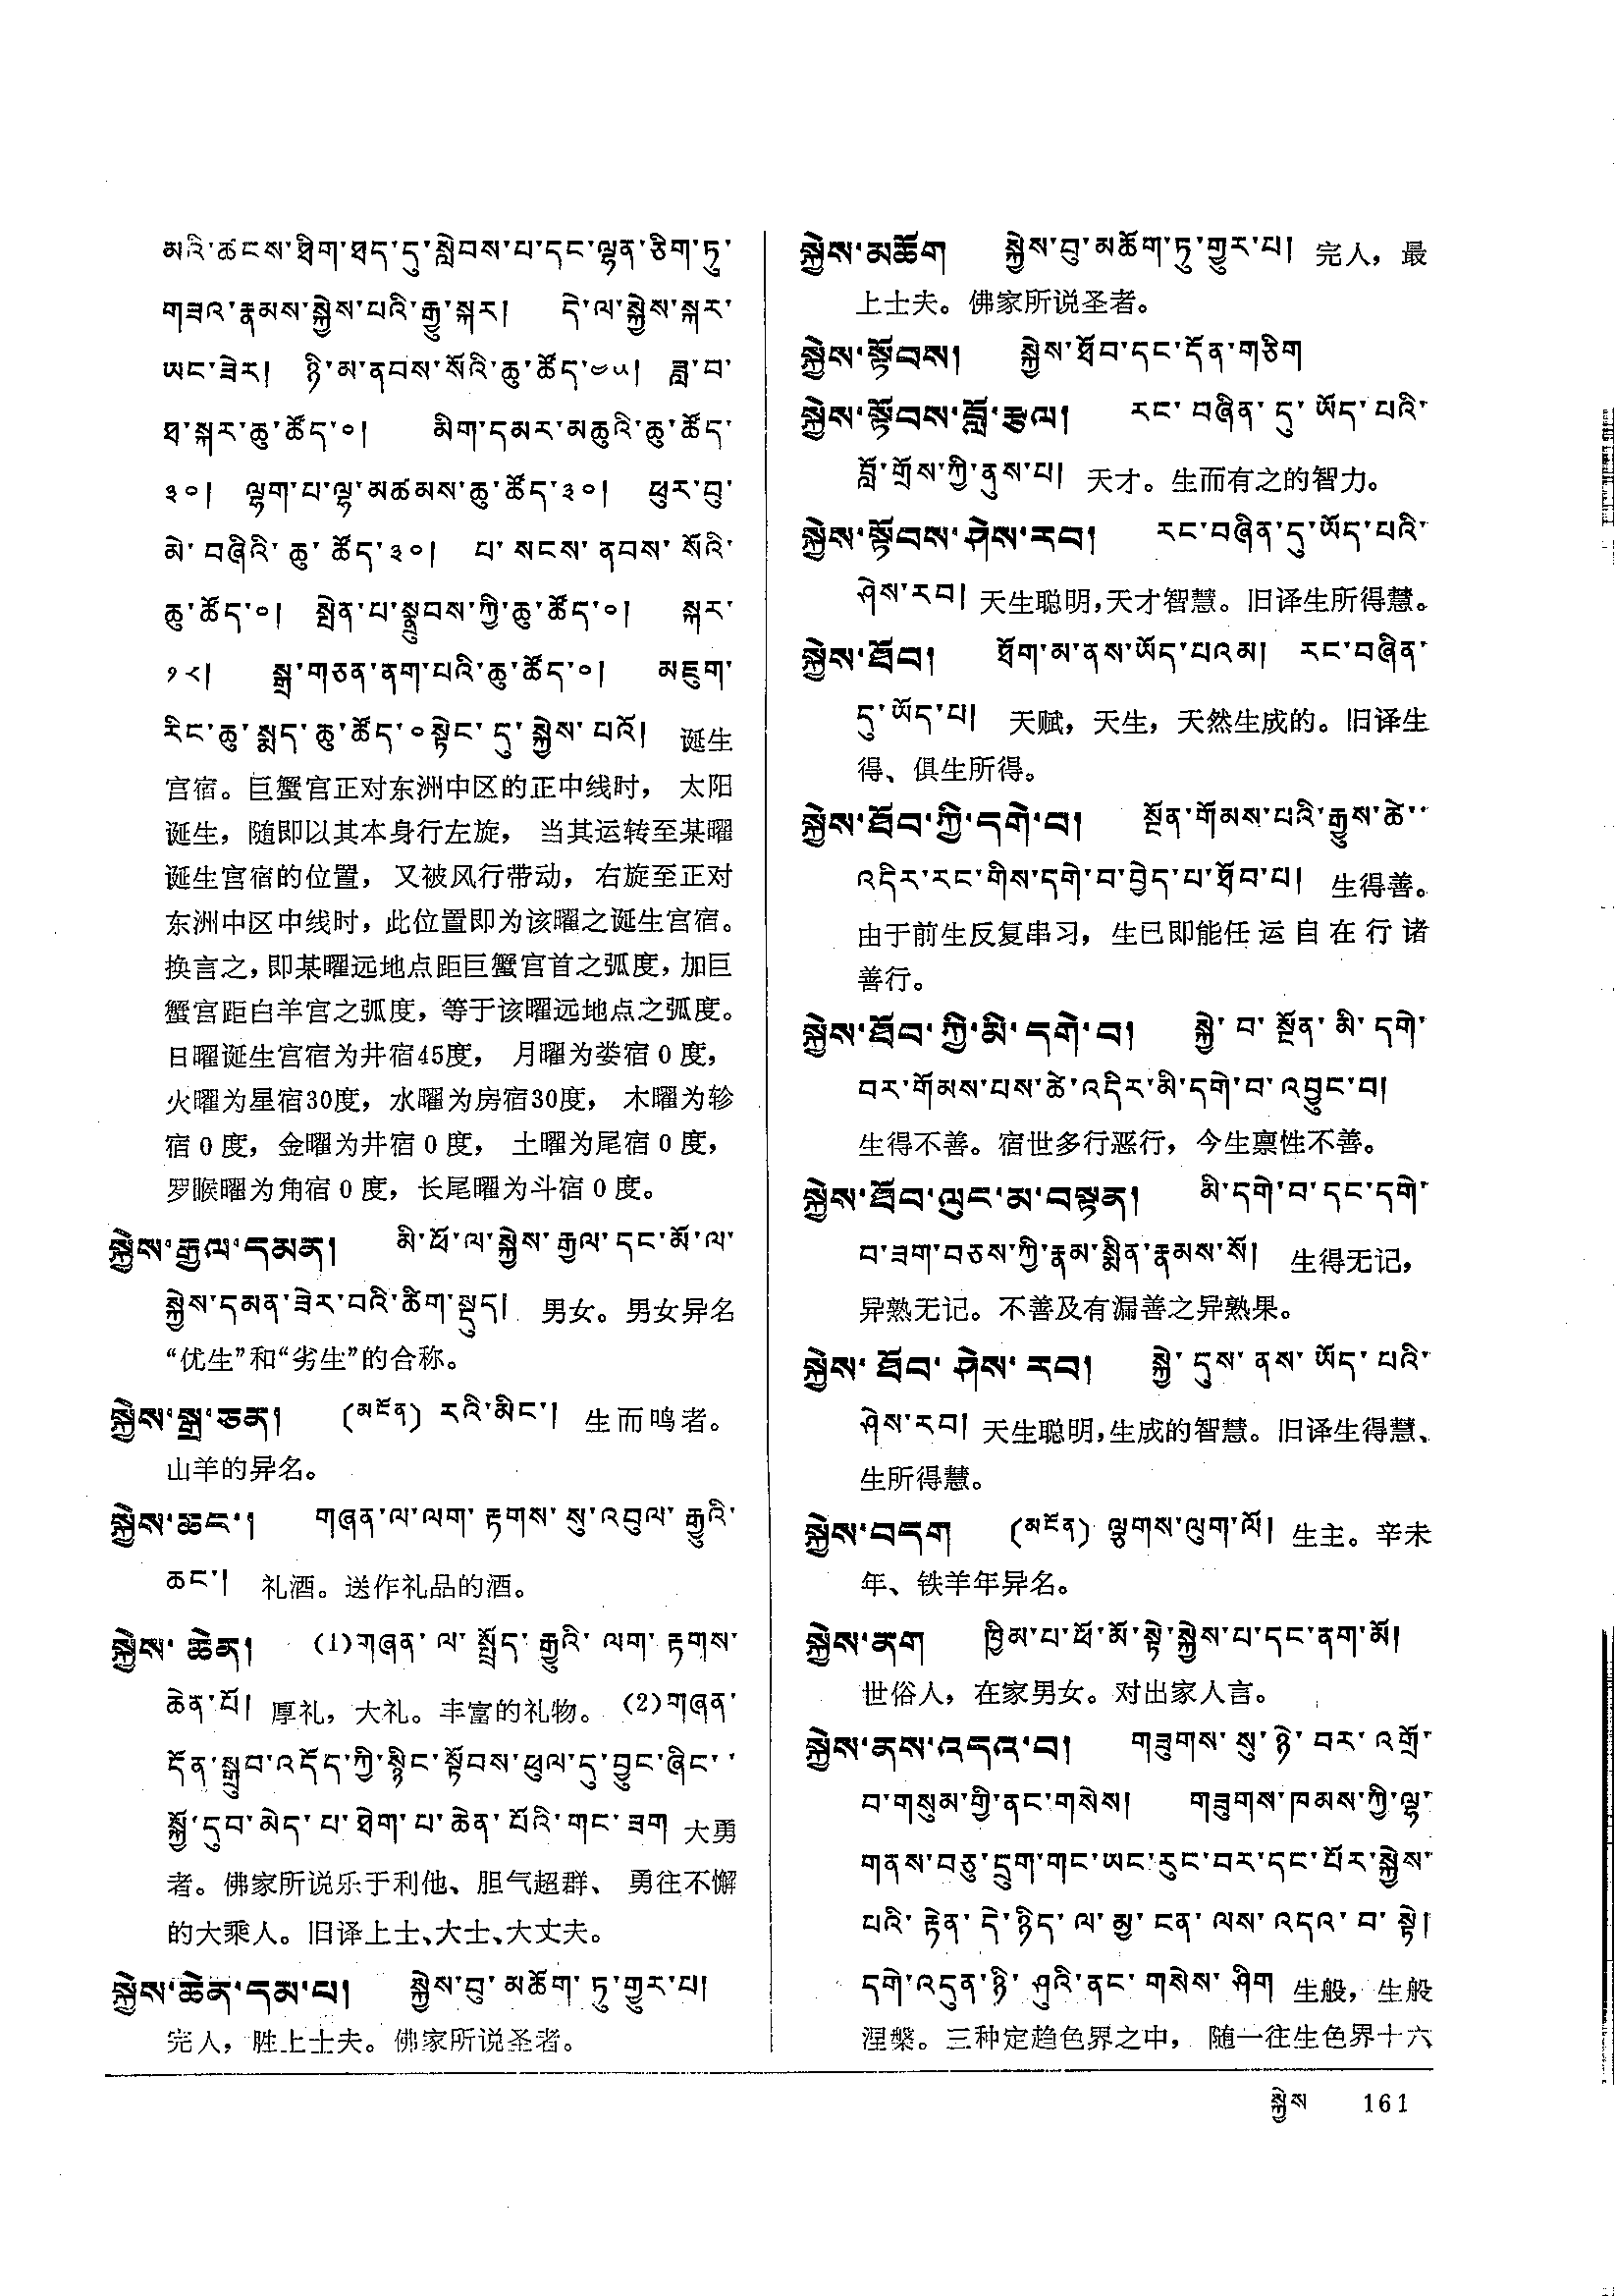 མའི་ཚངས་ཐིག་ཐད་དུ་སླེབས་པ་དང་ལྷན་ཅིག་ཏུ་
གཟའ་རྣམས་སྐྱེས་པའི་རྒྱུ་སྐར། དེ་ལ་སྐྱེས་སྐར་
ཡང་ཟེར། ཉི་མ་ནབས་སོའི་ཆུ་ཚོད་༤༥། ཟླ་བ་
ཐ་སྐར་ཆུ་ཚོད་༠། མིག་དམར་མཆུའི་ཆུ་ཚོད་
༣༠། ལྷག་པ་ལྷ་མཚམས་ཆུ་ཚོད་༣༠། ཕུར་བུ་
མེ་བཞིའི་ཆུ་ཚོད་༣༠། པ་སངས་ནབས་སོའི་
ཆུ་ཚོད་༠། སྤེན་པ་སྣྲུབས་ཀྱི་ཆུ་ཚོད་༠། སྐར་
༡༨། སྒྲ་གཅན་ནག་པའི་ཆུ་ཚོད་༠། མཇུག་
རིང་ཆུ་སྨད་ཆུ་ཚོད་༠སྟེང་དུ་སྐྱེས་པའོ། 诞生
宫宿。巨蟹宫正对东洲中区的正中线时， 太阳
诞生，随即以其本身行左旋， 当其运转至某曜
诞生宫宿的位置，又被风行带动，右旋至正对
东洲中区中线时，此位置即为该曜之诞生宫宿。
换言之，即某曜远地点距巨蟹宫首之弧度，加巨
蟹宫距白羊宫之弧度，等于该曜远地点之弧度。
日曜诞生宫宿为井宿45度， 月曜为娄宿０度，
火曜为星宿30度，水曜为房宿30度， 木曜为轸
宿０度，金曜为井宿０度， 土曜为尾宿０度，
罗睺曜为角宿０度，长尾曜为斗宿０度。
སྐྱེས་རྒྱལ་དམན། མི་ཕོ་ལ་སྐྱེས་རྒྱལ་དང་མོ་ལ་
སྐྱེས་དམན་ཟེར་བའི་ཚིག་སྡུད། 男女。男女异名
“优生”和“劣生”的合称。
སྐྱེས་སྒྲ་ཅན། (མངོན) རའི་མིང་། 生而鸣者。
山羊的异名。
སྐྱེས་ཆང་། གཞན་ལ་ལག་རྟགས་སུ་འབུལ་རྒྱུའི་
ཆང་། 礼酒。送作礼品的酒。
སྐྱེས་ཆེན། (1)གཞན་ལ་སྤྲོད་རྒྱུའི་ལག་རྟགས་
ཆེན་པོ། 厚礼，大礼。丰富的礼物。(2)གཞན་
དོན་སྒྲུབ་འདོད་ཀྱི་སྙིང་སྟོབས་ཕུལ་དུ་བྱུང་ཞིང་
སྐྱོ་དུབ་མེད་པ་ཐེག་པ་ཆེན་པོའི་གང་ཟག 大勇
者。佛家所说乐于利他、胆气超群、 勇往不懈
的大乘人。旧译上士、大士、大丈夫。
སྐྱེས་ཆེན་དམ་པ། སྐྱེས་བུ་མཆོག་ཏུ་གྱུར་པ།
完人，胜上士夫。佛家所说圣者。
སྐྱེས་མཆོག སྐྱེས་བུ་མཆོག་ཏུ་གྱུར་པ། 完人，最
上士夫。佛家所说圣者。
སྐྱེས་སྟོབས། སྐྱེས་ཐོབ་དང་དོན་གཅིག
སྐྱེས་སྟོབས་བློ་རྩལ། རང་བཞིན་དུ་ཡོད་པའི་
བློ་གྲོས་ཀྱི་ནུས་པ། 天才。生而有之的智力。
སྐྱེས་སྟོབས་ཤེས་རབ། རང་བཞིན་དུ་ཡོད་པའི་
ཤེས་རབ། 天生聪明，天才智慧。旧译生所得慧。
སྐྱེས་ཐོབ། ཐོག་མ་ནས་ཡོད་པའམ། རང་བཞིན་
དུ་ཡོད་པ། 天赋，天生，天然生成的。旧译生
得、俱生所得。
སྐྱེས་ཐོབ་ཀྱི་དགེ་བ། སྔོན་གོམས་པའི་རྒྱུས་ཚེ་
འདིར་རང་གིས་དགེ་བ་བྱེད་པ་ཐོབ་པ། 生得善。
由于前生反复串习，生已即能任运自在行诸
善行。
སྐྱེས་ཐོབ་ཀྱི་མི་དགེ་བ། སྐྱེ་བ་སྔོན་མི་དགེ་
བར་གོམས་པས་ཚེ་འདིར་མི་དགེ་བ་འབྱུང་བ།
生得不善。宿世多行恶行，今生禀性不善。
སྐྱེས་ཐོབ་ལུང་མ་བསྟན། མི་དགེ་བ་དང་དགེ་
བ་ཟག་བཅས་ཀྱི་རྣམ་སྨིན་རྣམས་སོ། 生得无记，
异熟无记。不善及有漏善之异熟果。
སྐྱེས་ཐོབ་ཤེས་རབ། སྐྱེ་དུས་ནས་ཡོད་པའི་
ཤེས་རབ། 天生聪明，生成的智慧。旧译生得慧、
生所得慧。
སྐྱེས་བདག (མངོན) ལྕགས་ལུག་ལོ། 生主。辛未
年、铁羊年异名。
སྐྱེས་ནག ཁྱིམ་པ་ཕོ་མོ་སྟེ་སྐྱེས་པ་དང་ནག་མོ།
世俗人，在家男女。对出家人言。
སྐྱེས་ནས་འདའ་བ། གཟུགས་སུ་ཉེ་བར་འགྲོ་
བ་གསུམ་གྱི་ནང་གསེས། གཟུགས་ཁམས་ཀྱི་ལྷ་
གནས་བཅུ་དྲུག་གང་ཡང་རུང་བར་དང་པོར་སྐྱེས་
པའི་རྟེན་དེ་ཉིད་ལ་མྱ་ངན་ལས་འདའ་བ་སྟེ།
དགེ་འདུན་ཉི་ཤུའི་ནང་གསེས་ཤིག 生般，生般
涅槃。三种定趋色界之中， 随一往生色界十六
སྐྱེས 161